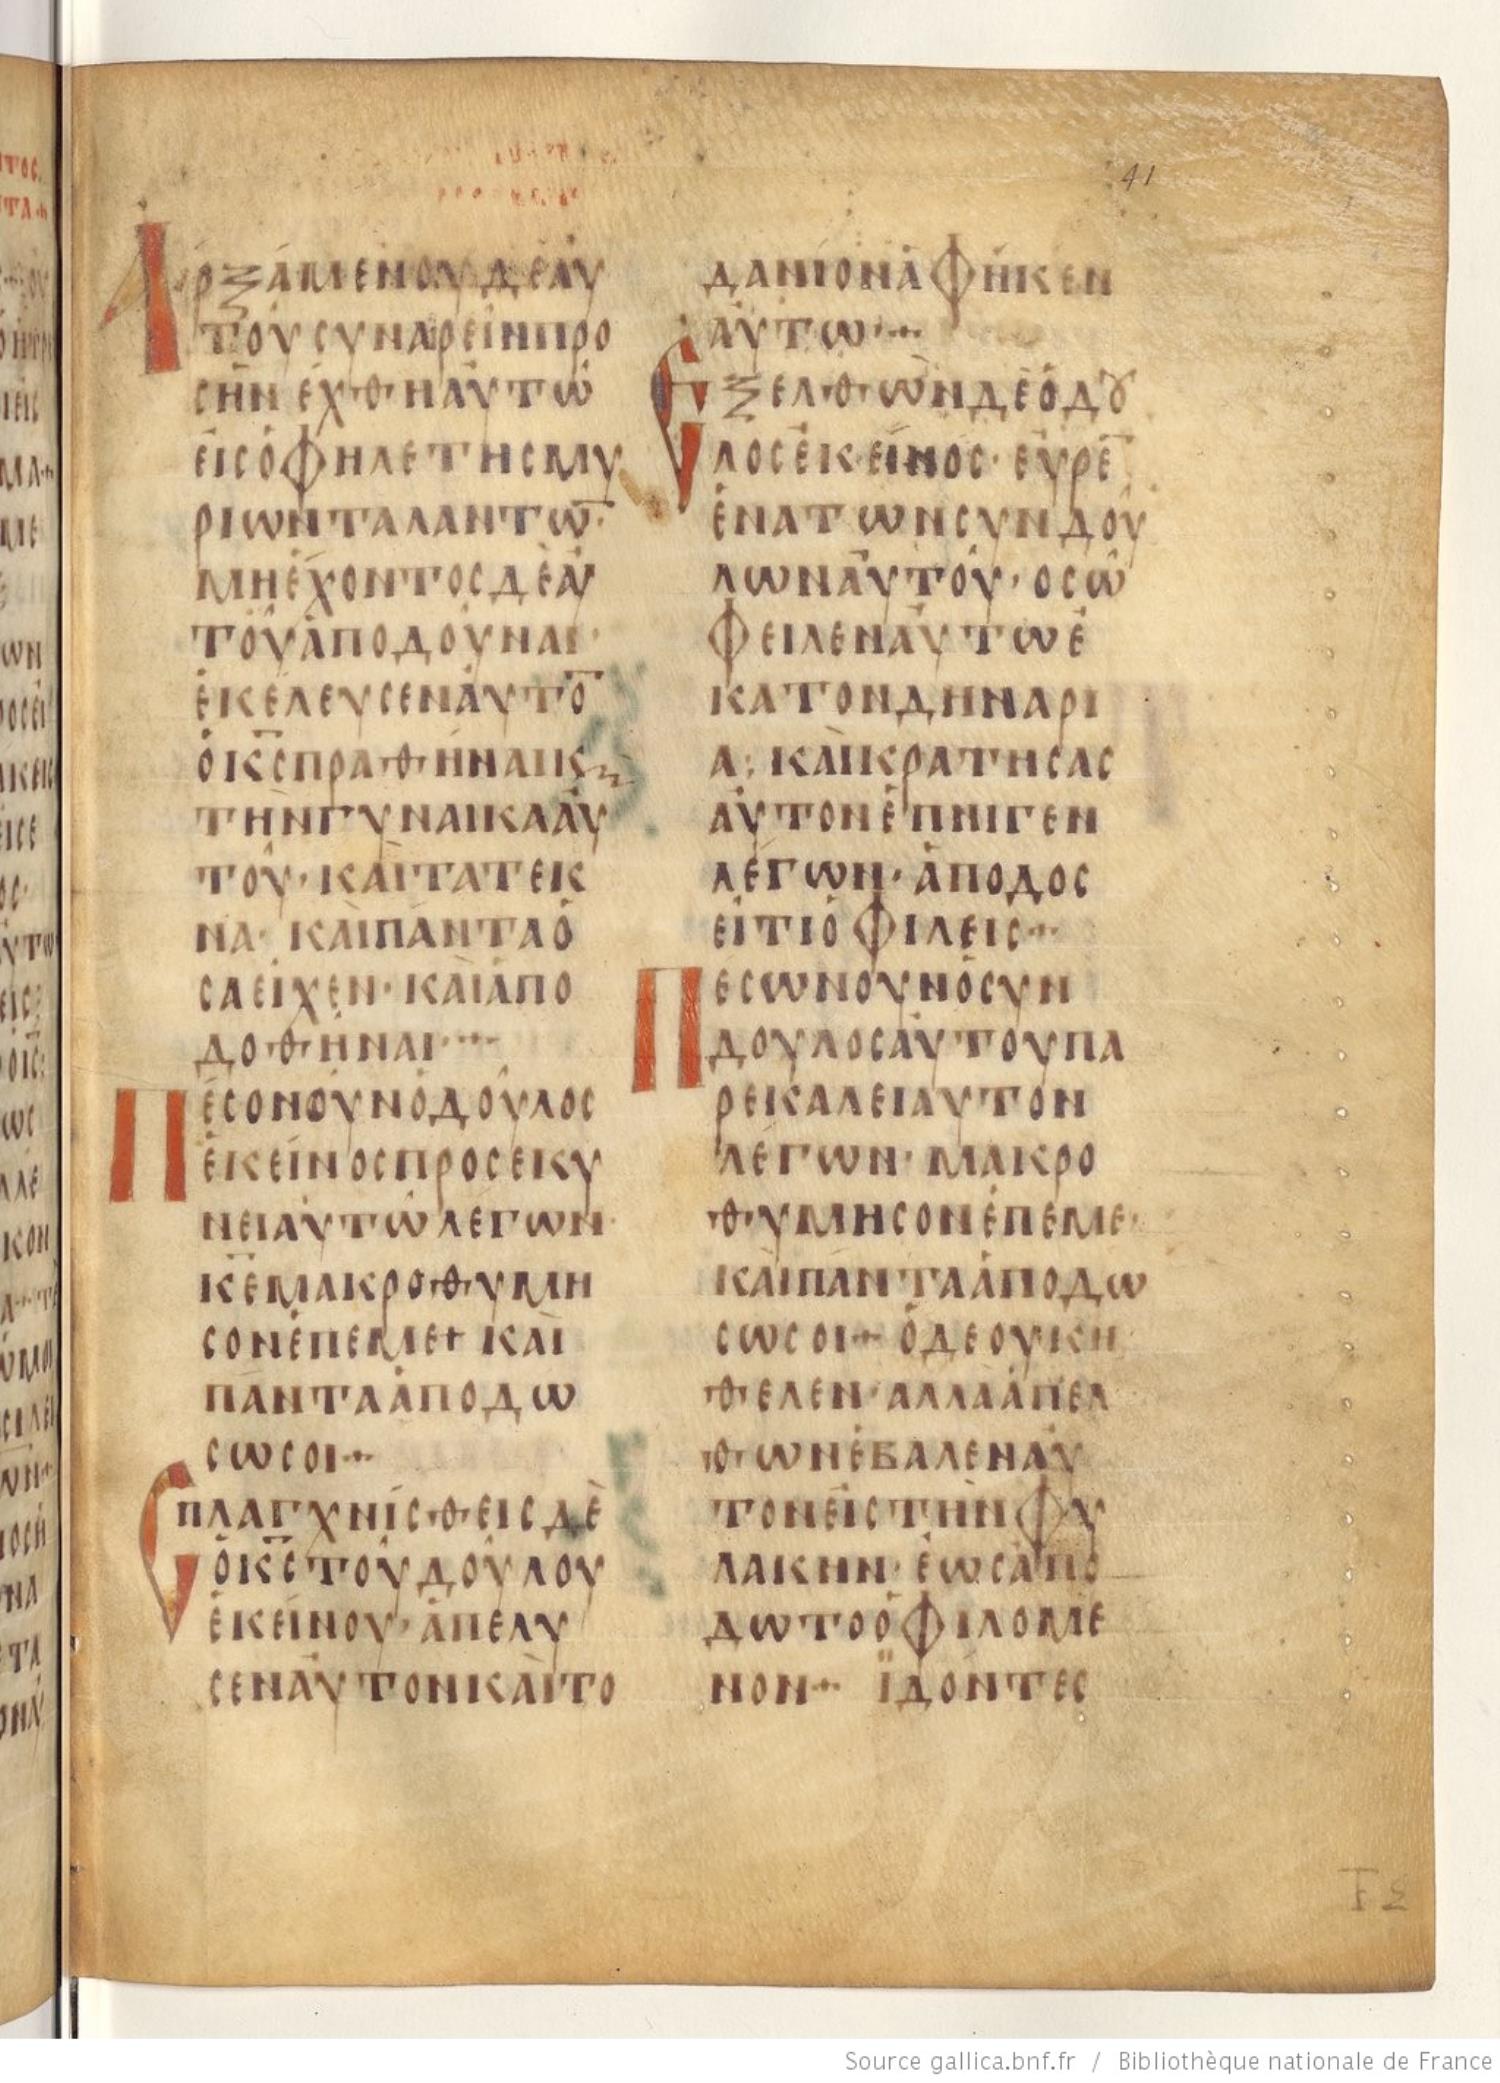 41
Αρξαμενουδεαυ
τουσυναρεινπρο
σηνεχθηαυτω
εισοφηλετησμυ
ριωνταλαντω̅·
μηεχοντοσδεαυ
τουαποδουναι·
εκελευσεναυτο̅
οκ̅σ̅πραθηναικ̀
τηνγυναικααυ
του·καιτατεκ
να·καιπανταο
σαειχεν·καιαπο
δοθηναι
Πεσονουνοδουλοσ
εκεινοσπροσεκυ
νειαυτωλεγων·
κ̅ε̅μακροθυμη
σονεπεμε+και
παντααποδω
σωσοι
Σπλαγχνισθεισδε
οκ̅σ̅τουδουλου
εκεινου·απελυ
σεναυτονκαιτο
δανιοναφηκεν
αυτω
Εξελθωνδεοδȣ
λοσεκεινοσ·ευρε̅
ενατωνσυνδου
λωναυτου·οσω
φειλεναυτωε
κατονδηναρι
α;καικρατησασ
αυτονεπνιγεν
λεγων·αποδοσ
ειτιοφιλεισ
Πεσωνουνοσυν
δουλοσαυτουπα
ρεκαλειαυτον
λεγων·μακρο
θυμησονεπεμε·
καιπαντααποδω
σωσοι οδεουκη
θελεν·αλλααπελ
θωνεβαλεναυ
τονειστηνφυ
λακην·εωσαπο
δωτοοφιλομε
νον ϊδοντεσ
Source gallica.bnf.fr / Bibliothèque nationale de France